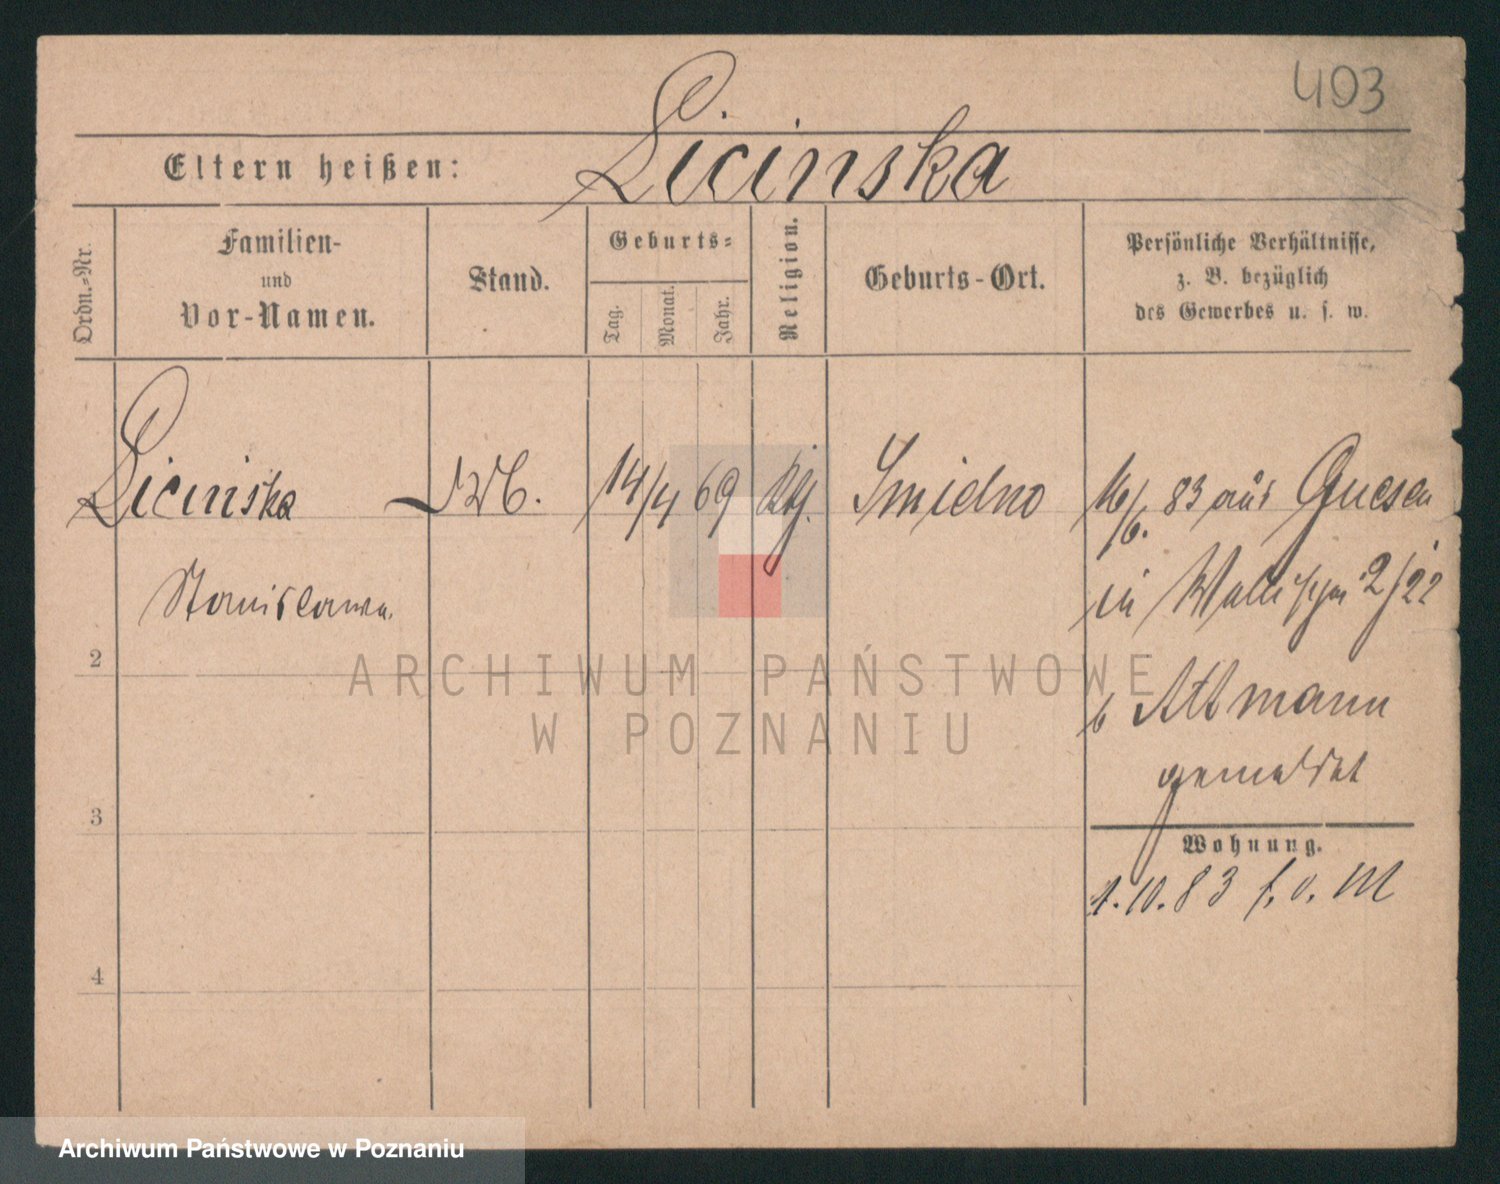 403
Licinska
Eltern heißen:
Ordn.-Nr.
Familien-
und
Vor-Namen.
Stand.
Geburts-
Tag.
Monat.
Jahr.
Religion.
Geburts-Ort.
Persönliche Verhältnisse,
z. B. bezüglich
des Gewerbes u. s. w.
Licinska
14/4 69
16/6. 83 aus Gnesen
Stanislawa.
in
2/22
2
ARCHIWUM PAŃSTWOWE
W POZNANIU
b Altmann
gemeldet
3
Wohnung.
1.10.83 f. o. M
4
Archiwum Państwowe w Poznaniu